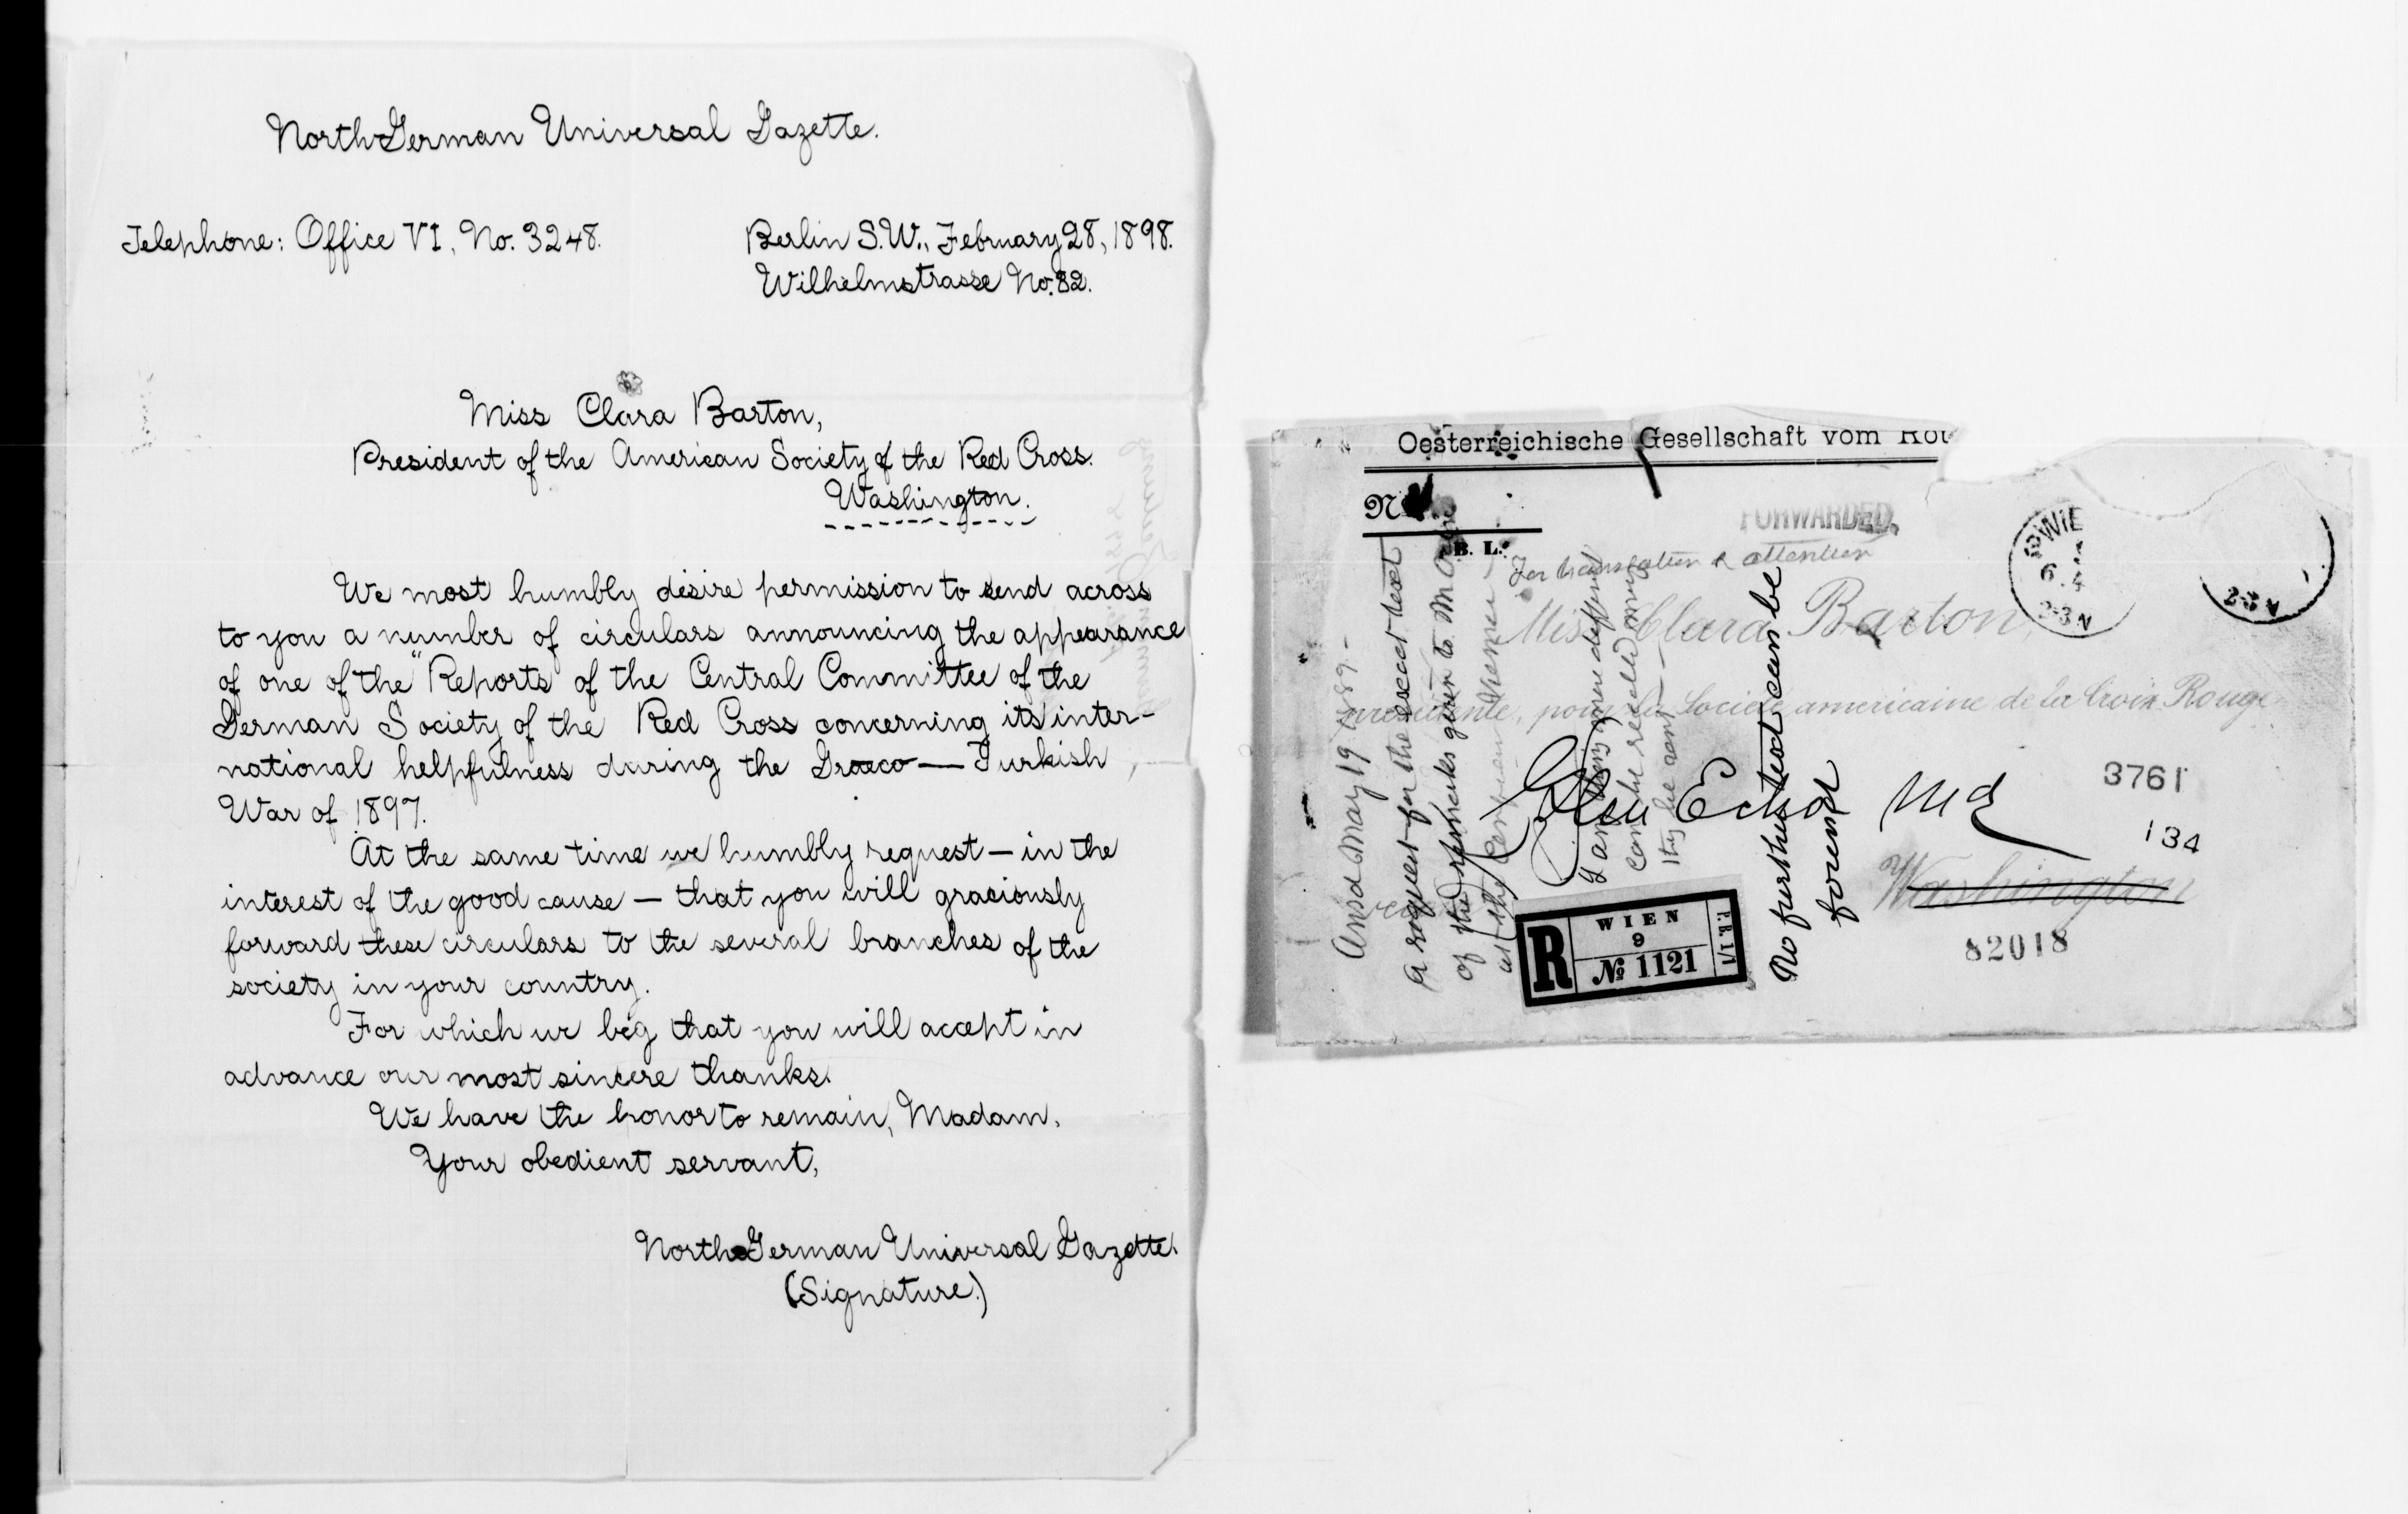 North German Universal Gazette.
Telephone: Office VI, No. 3248.
Berlin S.W., February 28, 1898.
Wilhelmstrasse No. 32.
Miss Clara Barton,
President of the American Society of the Red Cross.
Washington.
We most humbly desire permission to send across
to you a number of circulars announcing the appearance
of one of the "Reports of the Central Committee of the
German Society of the Red Cross concerning its inter-
national helpfulness during the Graeco — Turkish
War of 1897.
At the same time we humbly request — in the
interest of the good cause — that you will graciously
forward these circulars to the several branches of the
society in your country.
For which we beg that you will accept in
advance our most sincere thanks.
We have the honor to remain, Madam,
Your obedient servant,
North German Universal Gazette.
(Signature.)
Oesterreichische Gesellschaft vom
N
B. L.
FORWARDED.
For translation & attention
Miss Clara Barton,
pour la Société americaine de la Croix Rouge
Glen Echo Md
Washington
3761
134
82018
WIE
6
4
2-3 N
2-3 N
R
WIEN
9
№ 1121
Ansd May 19
A request for the exact text
of the remarks given to
at the
can be
No further text can be
found